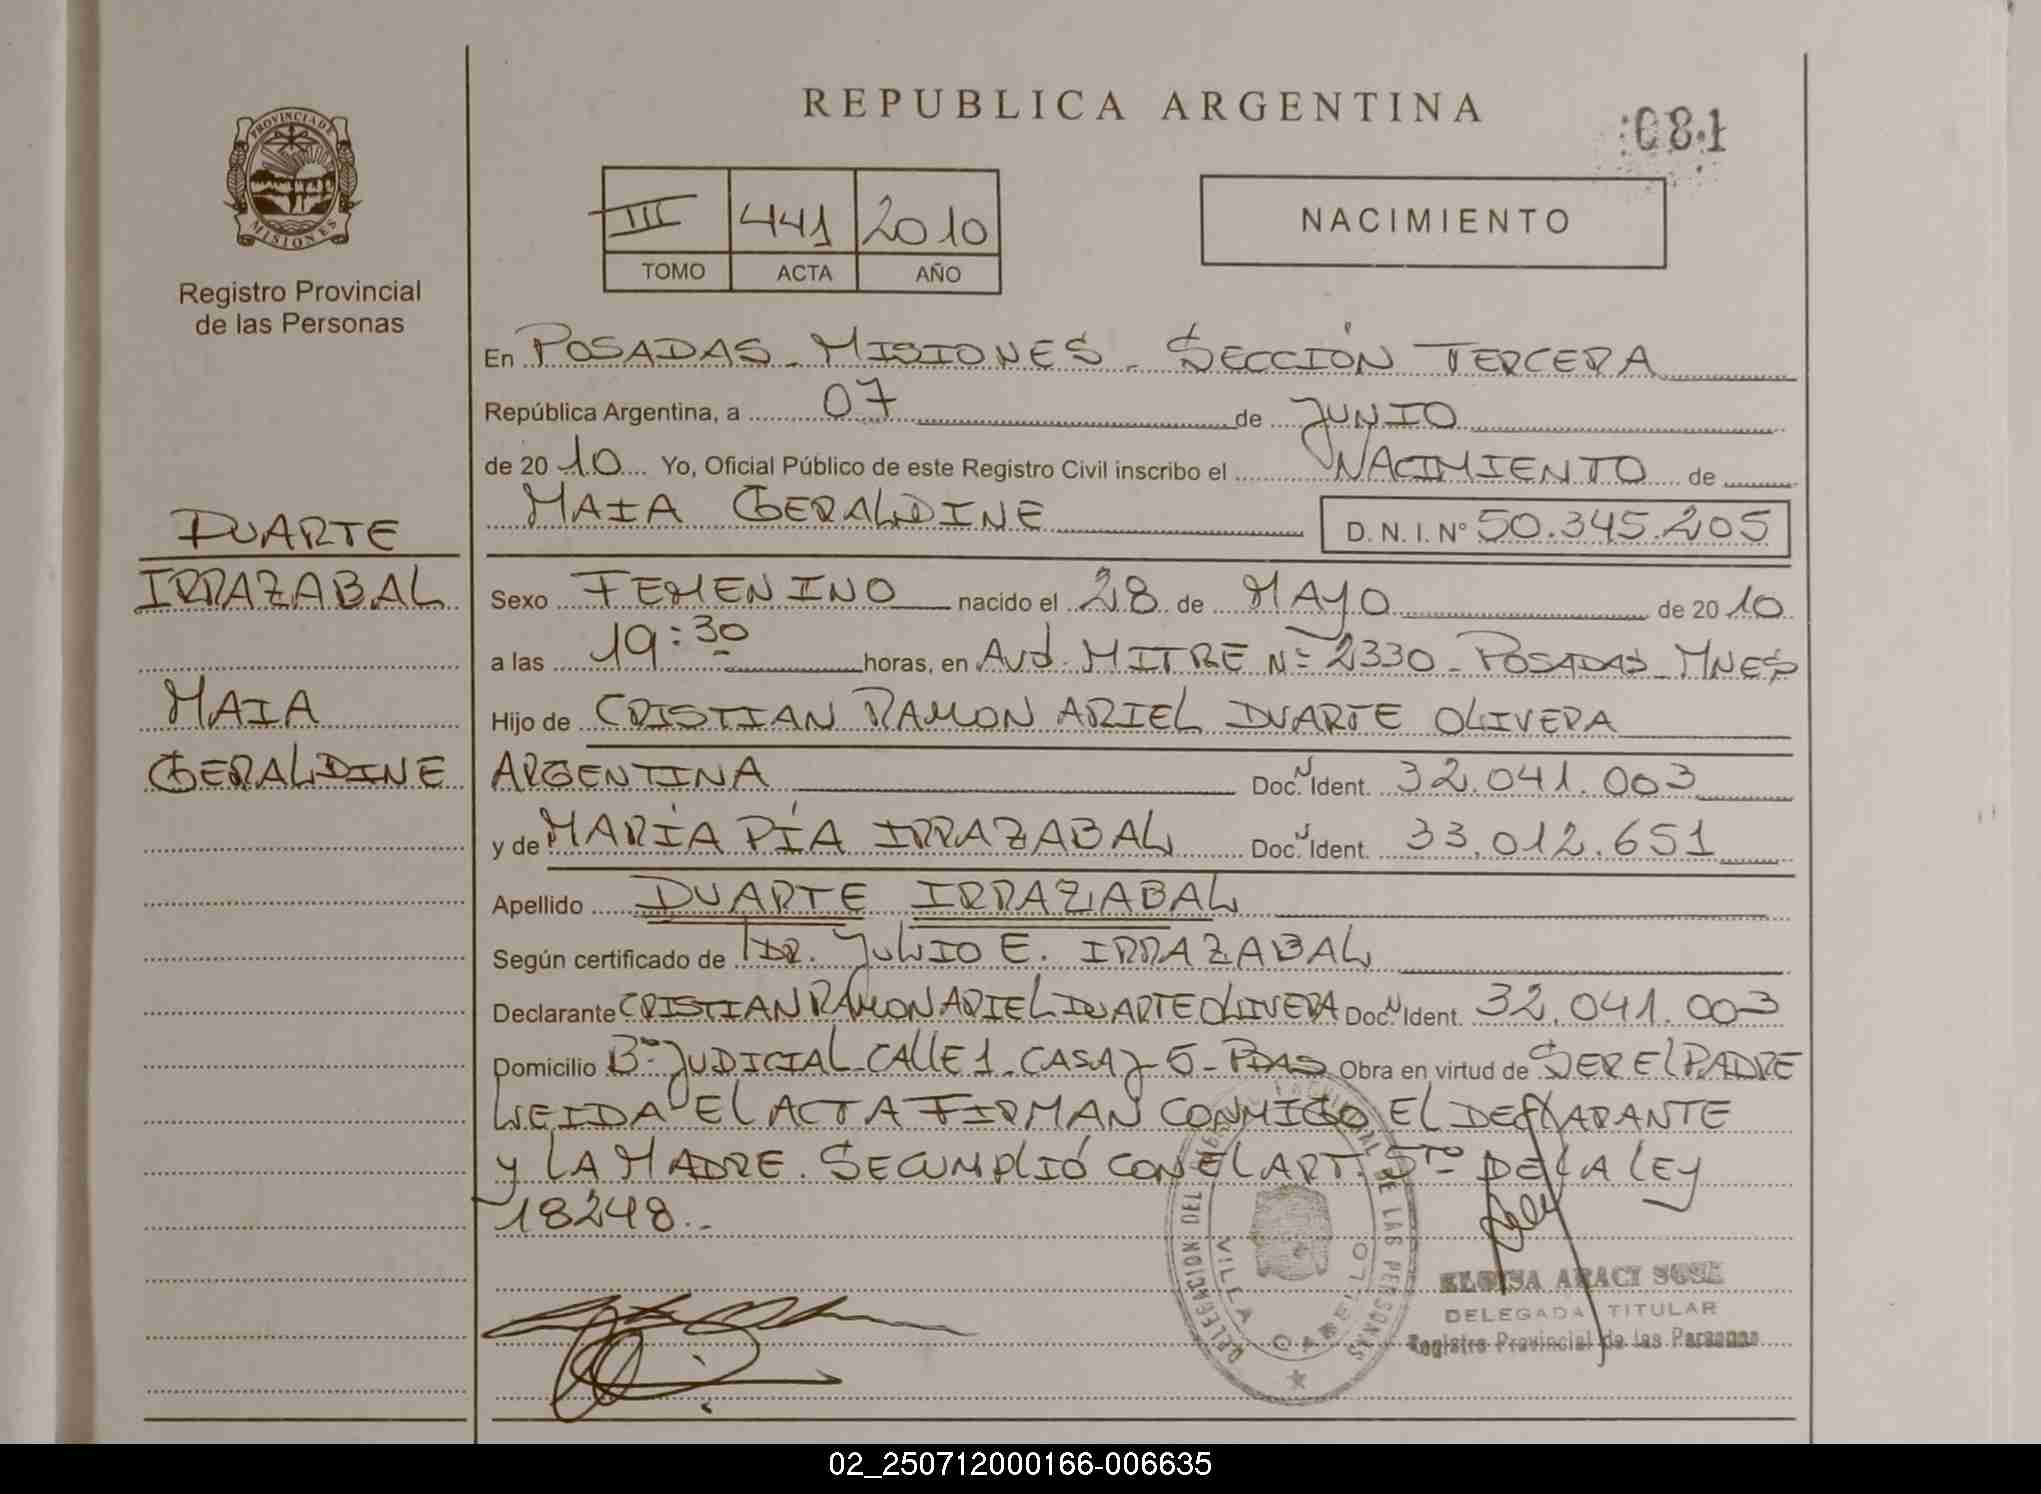 REPUBLICA ARGENTINA
081
PROVINCIA DE
MISIONES
Registro Provincial
de las Personas
III 441 2010
TOMO ACTA AÑO
NACIMIENTO
En POSADAS - MISIONES - SECCIÓN TERCERA
República Argentina, a 07 de JUNIO
de 2010 Yo, Oficial Público de este Registro Civil inscribo el NACIMIENTO de
MAIA GERALDINE D. N. I. Nº 50.345.205
DUARTE
IRRAZABAL
MAIA
GERALDINE
Sexo FEMENINO nacido el 28 de MAYO de 2010
a las 19:30 horas, en Avd. MITRE Nº 2330 - POSADAS - MNES
Hijo de CRISTIAN RAMON ARIEL DUARTE OLIVERA
ARGENTINA Doc. N Ident. 32.041.003
y de MARÍA PÍA IRRAZABAL Doc. N Ident. 33.012.651
Apellido DUARTE IRRAZABAL
Según certificado de DR. JULIO E. IRRAZABAL
Declarante CRISTIAN RAMON ARIEL DUARTE OLIVERA Doc. N Ident. 32.041.003
Domicilio Bº JUDICIAL - CALLE 1 - CASA J-5 - PDAS Obra en virtud de SER EL PADRE
LEIDA EL ACTA FIRMAN CONMIGO EL DECLARANTE
Y LA MADRE. SE CUMPLIÓ CON EL ART. 5TO DE LA LEY
18248.-
DELEGACION DEL REGISTRO PROVINCIAL DE LAS PERSONAS
VILLA CABELLO
ELOISA ARACI SOSA
DELEGADA TITULAR
Registro Provincial de las Personas
02_250712000166-006635